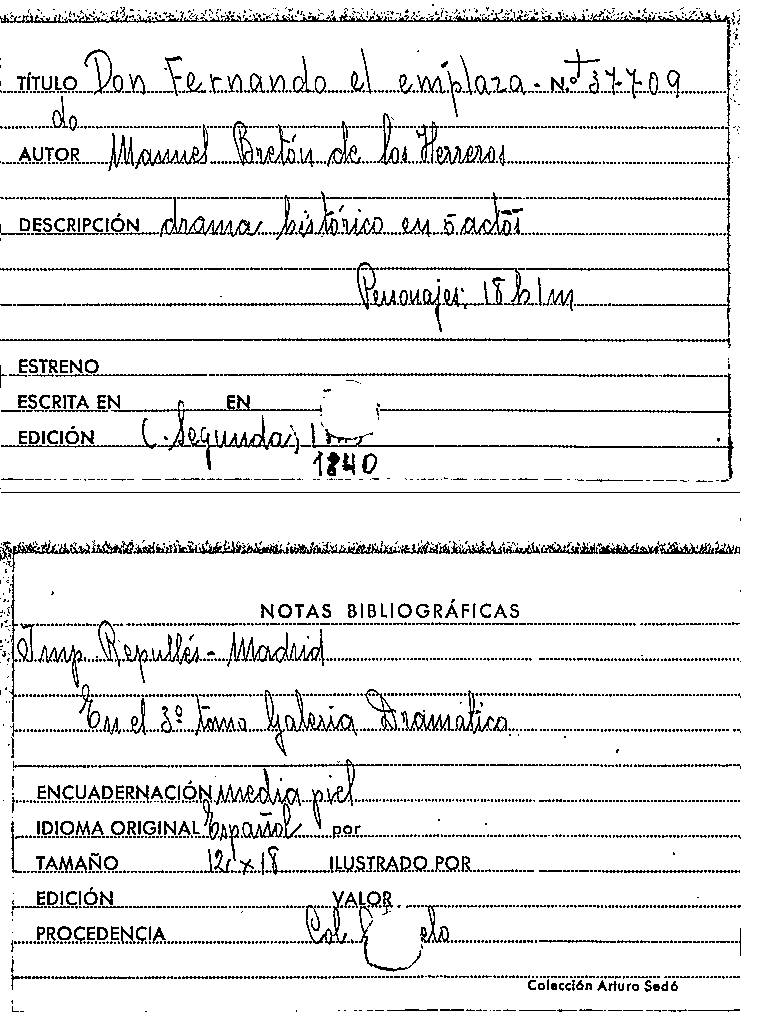 TÍTULO Don Fernando el emplaza- N.º 37709
do
AUTOR Manuel Bretón de los Herreros
DESCRIPCIÓN drama histórico en 5 actos
Personajes: 18 h 1 m
ESTRENO
ESCRITA EN EN
EDICIÓN (Segunda)
1840
NOTAS BIBLIOGRÁFICAS
Imp. Repullés - Madrid
En el 3º tomo Galeria Dramática
ENCUADERNACIÓN media piel
IDIOMA ORIGINAL Español por
TAMAÑO 12 x 18 ILUSTRADO POR
EDICIÓN VALOR
PROCEDENCIA Col.
Colección Arturo Sedó